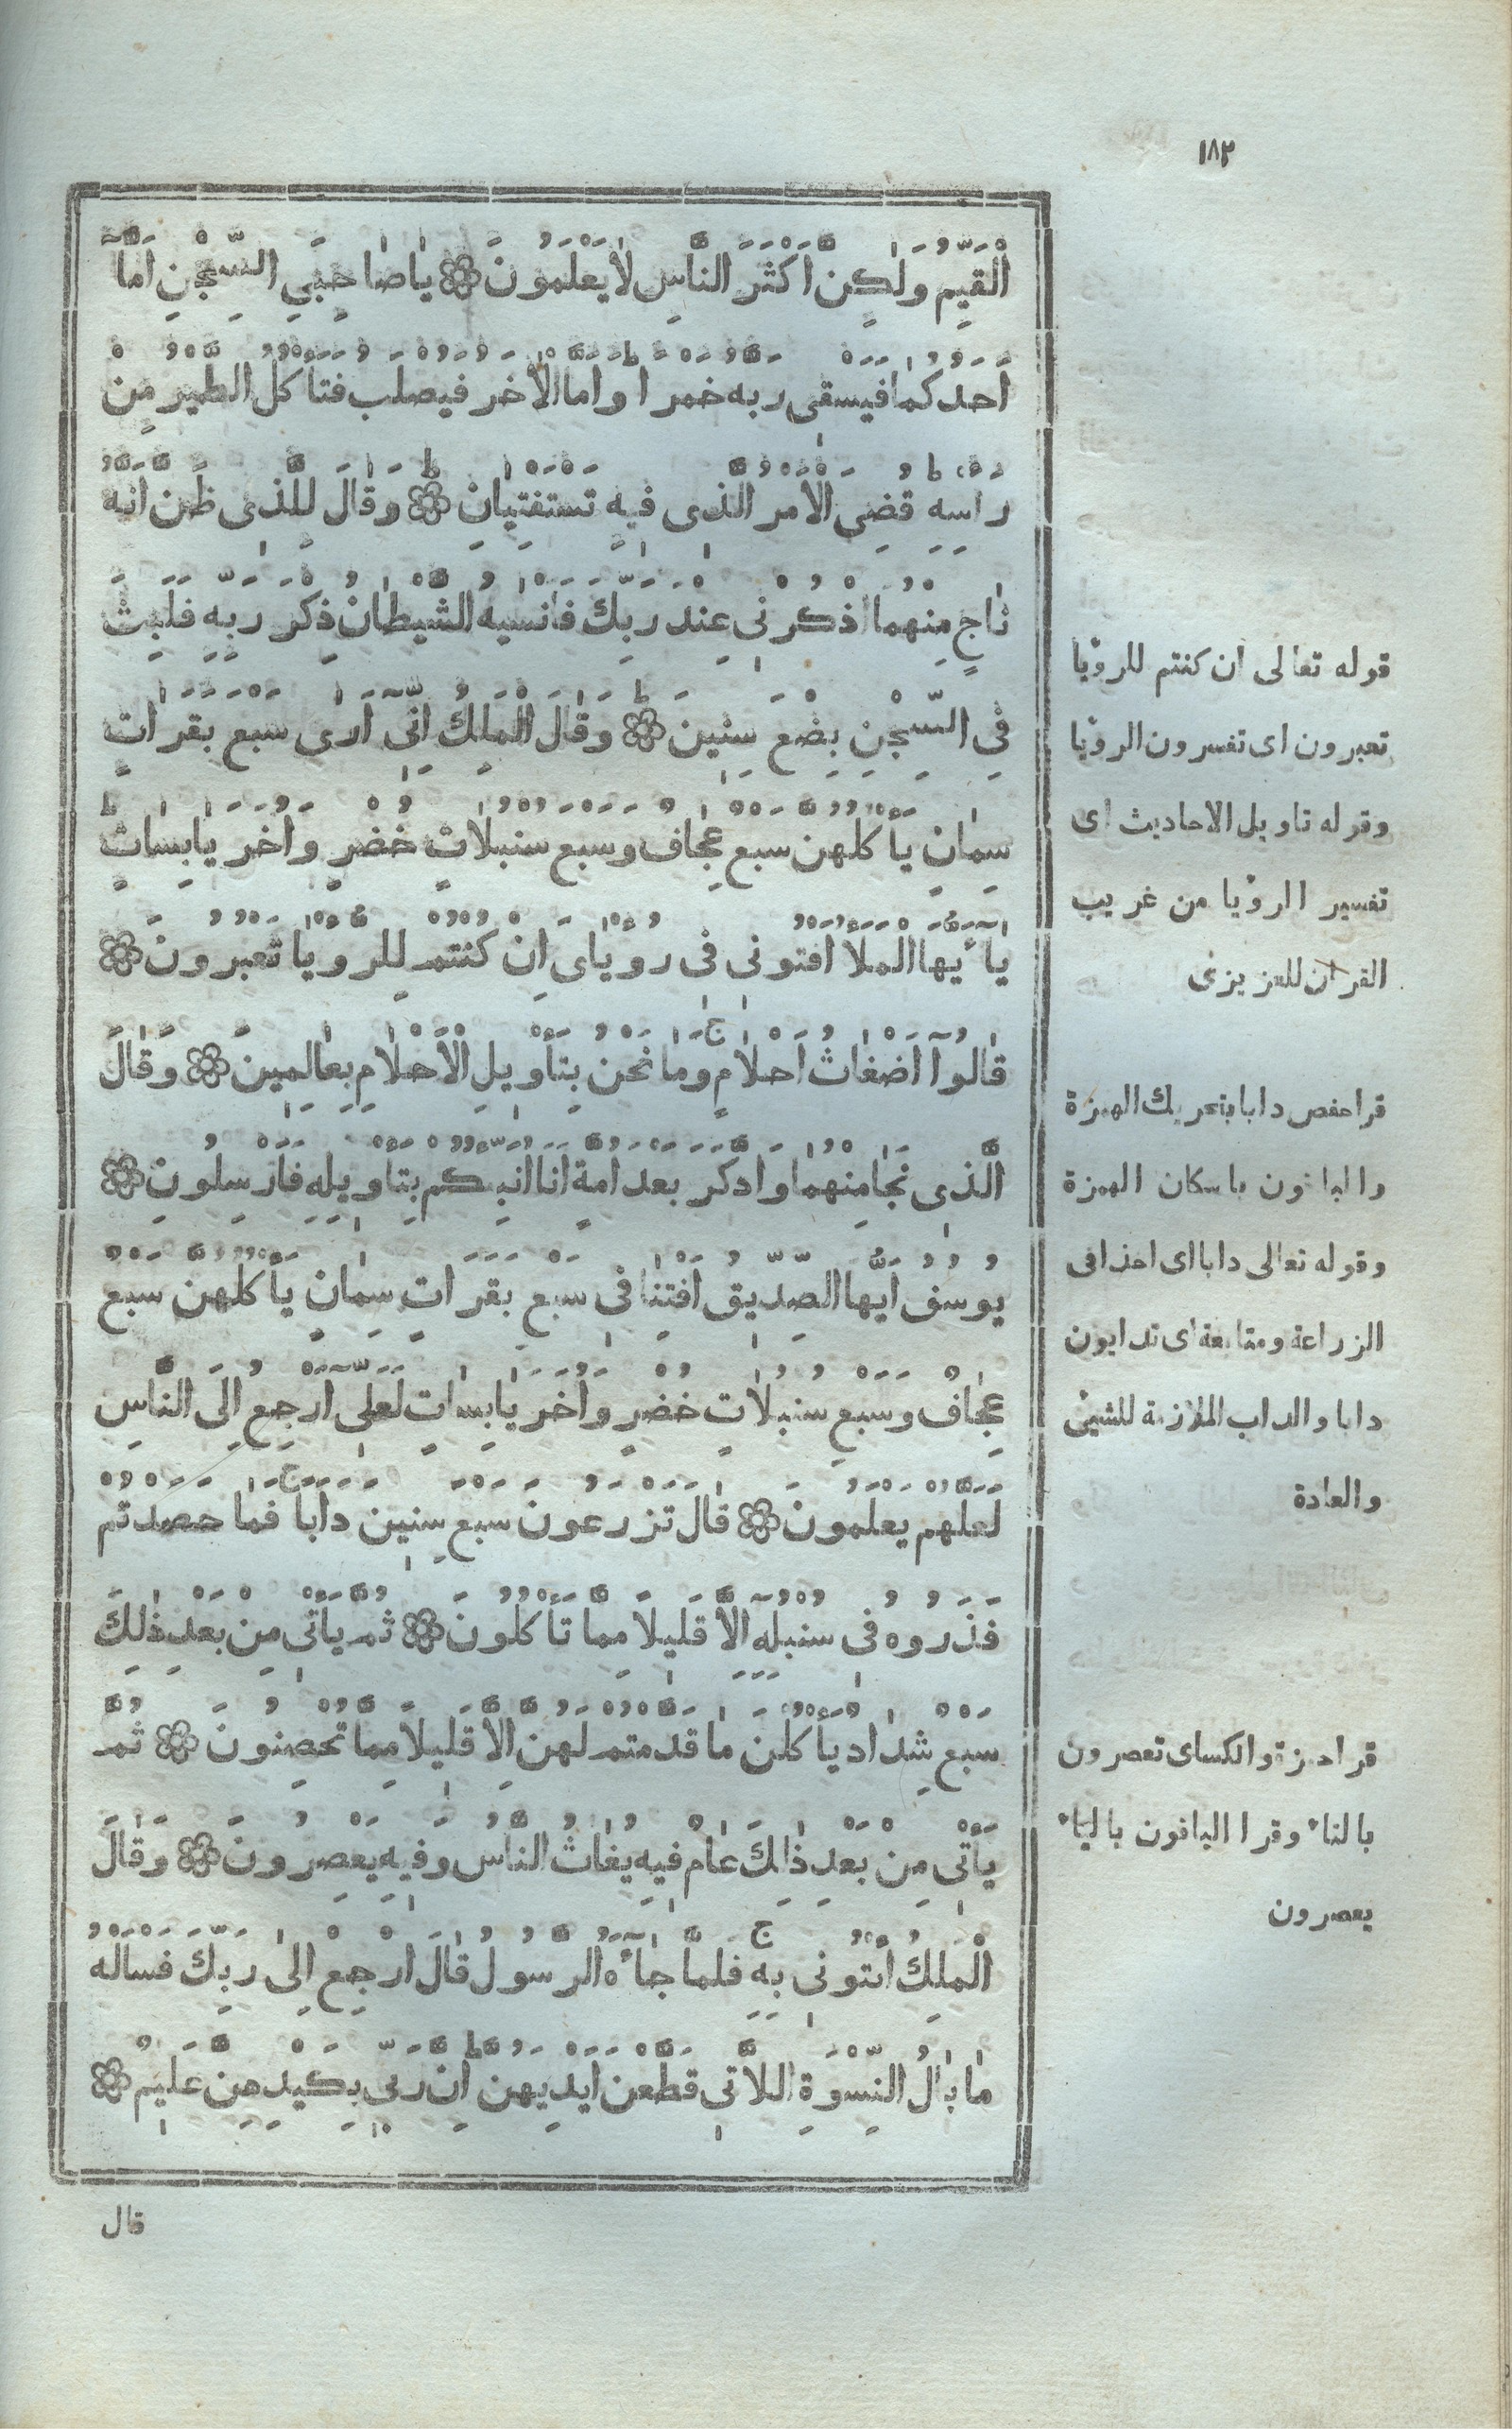 ١٨٣
اَلْقَيِّمُ وَلٰكِنَّ اَكْثَرَ النَّاسِ لاٰ يَعْلَمُونَ ۞ يٰا صٰاحِبَيِ السِّجْنِ اَمَّآ
اَحَدُكُمٰا فَيَسْقٖى رَبَّهُ خَمْرًا وَاَمَّا الْاٰخَرُ فَيُصْلَبُ فَتَأْكُلُ الطَّيْرُ مِنْ
رَأْسِهٖ قُضِىَ الْاَمْرُ الَّذٖى فٖيهِ تَسْتَفْتِيٰانِ ۞ وَقٰالَ لِلَّذٖى ظَنَّ اَنَّهُ
نٰاجٍ مِنْهُمَا اذْكُرْنٖى عِنْدَ رَبِّكَ فَاَنْسٰيهُ الشَّيْطٰانُ ذِكْرَ رَبِّهٖ فَلَبِثَ
فِى السِّجْنِ بِضْعَ سِنٖينَ ۞ وَقٰالَ الْمَلِكُ اِنّٖى اَرٰى سَبْعَ بَقَرٰاتٍ
سِمٰانٍ يَأْكُلُهُنَّ سَبْعٌ عِجٰافٌ وَسَبْعَ سُنْبُلاٰتٍ خُضْرٍ وَاُخَرَ يٰابِسٰاتٍ
يٰآ أَيُّهَا الْمَلَأُ اَفْتُونٖى فٖى رُؤْيٰاىَ اِنْ كُنْتُمْ لِلرُّؤْيٰا تَعْبُرُونَ ۞
قٰالُوٓا اَضْغٰاثُ اَحْلٰامٍ ج وَمٰا نَحْنُ بِتَأْوٖيلِ الْاَحْلٰامِ بِعٰالِمٖينَ ۞ وَقٰالَ
الَّذٖى نَجٰا مِنْهُمٰا وَادَّكَرَ بَعْدَ اُمَّةٍ اَنَا اُنَبِّئُكُمْ بِتَأْوٖيلِهٖ فَاَرْسِلُونِ ۞
يُوسُفُ اَيُّهَا الصِّدّٖيقُ اَفْتِنٰا فٖى سَبْعِ بَقَرٰاتٍ سِمٰانٍ يَأْكُلُهُنَّ سَبْعٌ
عِجٰافٌ وَسَبْعِ سُنْبُلاٰتٍ خُضْرٍ وَاُخَرَ يٰابِسٰاتٍ لَعَلّٖى اَرْجِعُ اِلَى النَّاسِ
لَعَلَّهُمْ يَعْلَمُونَ ۞ قٰالَ تَزْرَعُونَ سَبْعَ سِنٖينَ دَأَبًا ج فَمٰا حَصَدْتُمْ
فَذَرُوهُ فٖى سُنْبُلِهٖٓ اِلاَّ قَلٖيلاً مِمَّا تَأْكُلُونَ ۞ ثُمَّ يَأْتٖى مِنْ بَعْدِ ذٰلِكَ
سَبْعٌ شِدٰادٌ يَأْكُلْنَ مٰا قَدَّمْتُمْ لَهُنَّ اِلاَّ قَلٖيلاً مِمَّا تُحْصِنُونَ ۞ ثُمَّ
يَأْتٖى مِنْ بَعْدِ ذٰلِكَ عٰامٌ فٖيهِ يُغٰاثُ النَّاسُ وَفٖيهِ يَعْصِرُونَ ۞ وَقٰالَ
الْمَلِكُ ائْتُونٖى بِهٖ ج فَلَمَّا جٰآءَهُ الرَّسُولُ قٰالَ ارْجِعْ اِلٰى رَبِّكَ فَسْأَلْهُ
مٰا بٰالُ النِّسْوَةِ اللاَّتٖى قَطَّعْنَ اَيْدِيَهُنَّ اِنَّ رَبّٖى بِكَيْدِهِنَّ عَلٖيمٌ ۞
قال
قوله تعالى ان كنتم للرؤيا
تعبرون اى تفسرون الرؤيا
وقوله تاويل الاحاديث اى
تفسير الرؤيا من غريب
القرآن للعزيزى
قرا حفص دابا بتحريك الهمزة
والباقون باسكان الهمزة
وقوله تعالى دابا اى اخذا فى
الزراعة ومتابعة اى تدابون
دابا والداب الملازمة للشىٔ
والعادة
قرا حمزة والكساى تعصرون
بالتاء وقرا الباقون بالياء
يعصرون